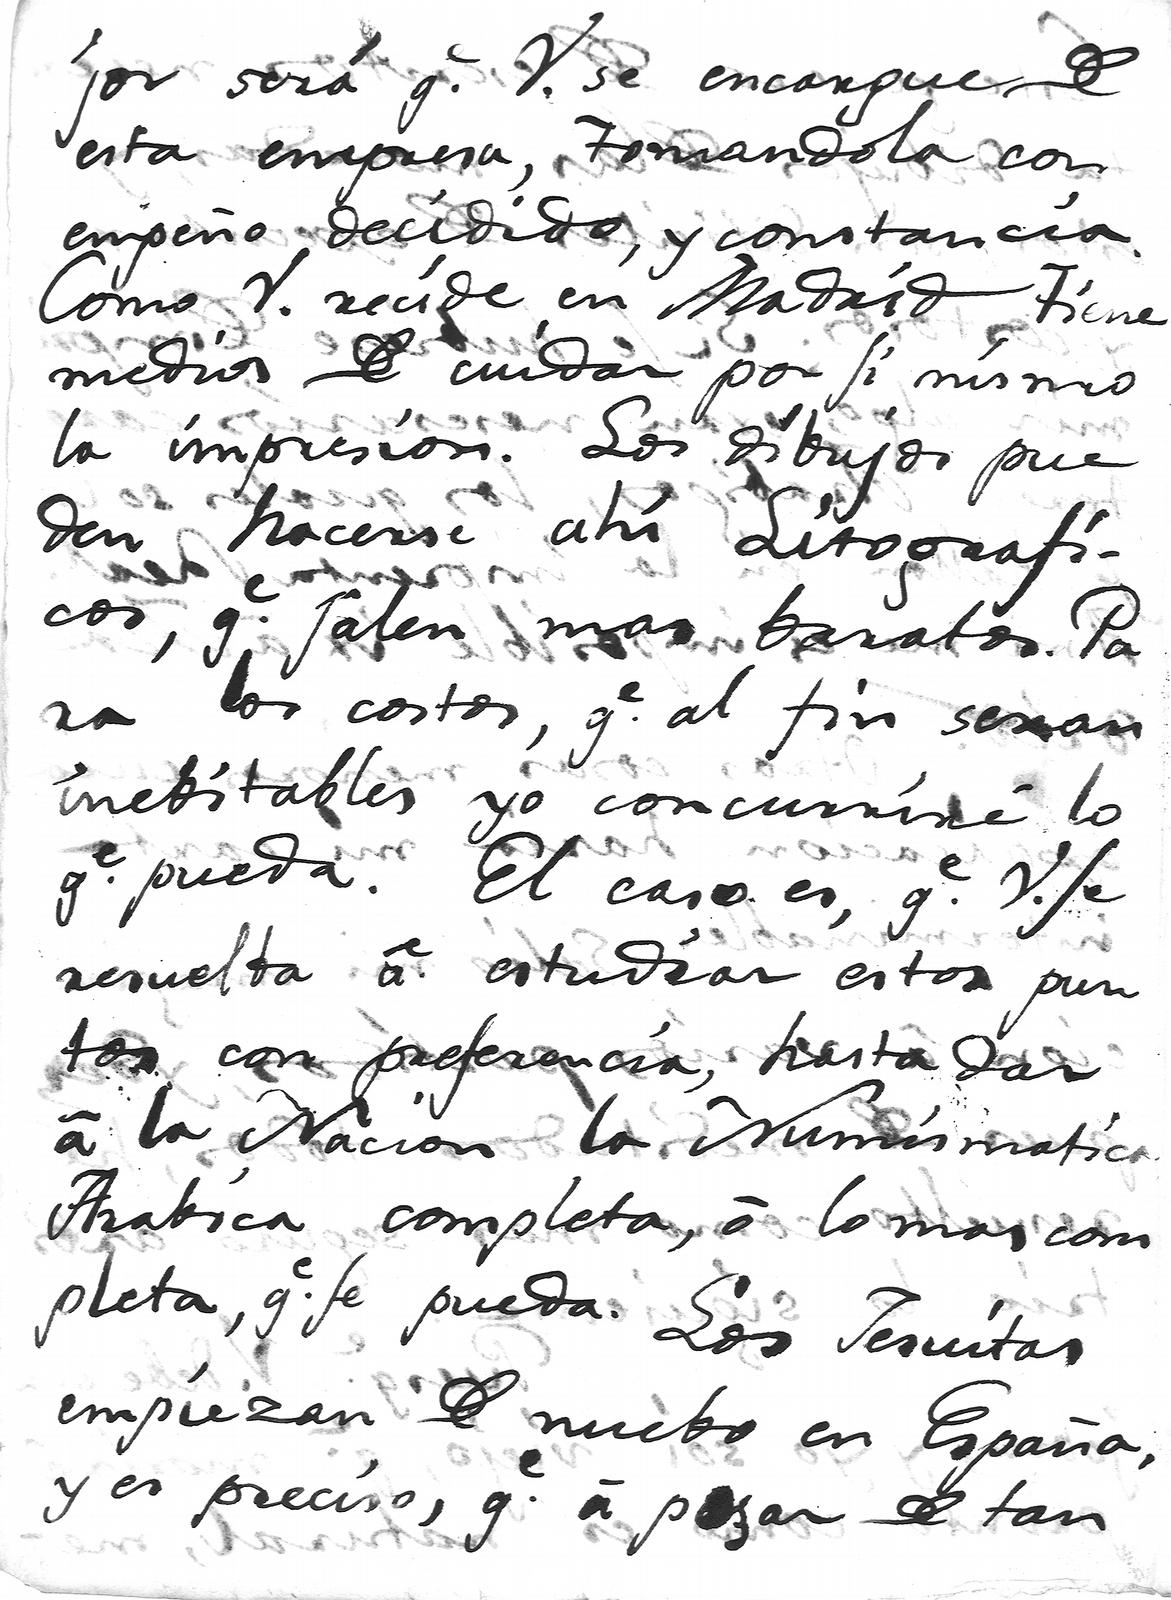 jor será q.e V. se encargue de
esta empresa, tomandola con
empeño decidido, y constancia.
Como V. recide en Madrid tiene
medios de cuidar por si mismo
la impresion. Los dibujos pue
den hacerse ahi Litografi-
cos, q.e salen mas baratos. Pa
ra los costos, q.e al fin seran
inebitables yo concurriré lo
q.e pueda. El caso es, q.e V. se
resuelta á estudiar estos pun
tos con preferencia, hasta dar
á la Nacion la Numismatica
Arabica completa, ó lo mas com
pleta, q.e se pueda. Los Jesuitas
empiezan de nuebo en España,
y es preciso, q.e á pesar de tan